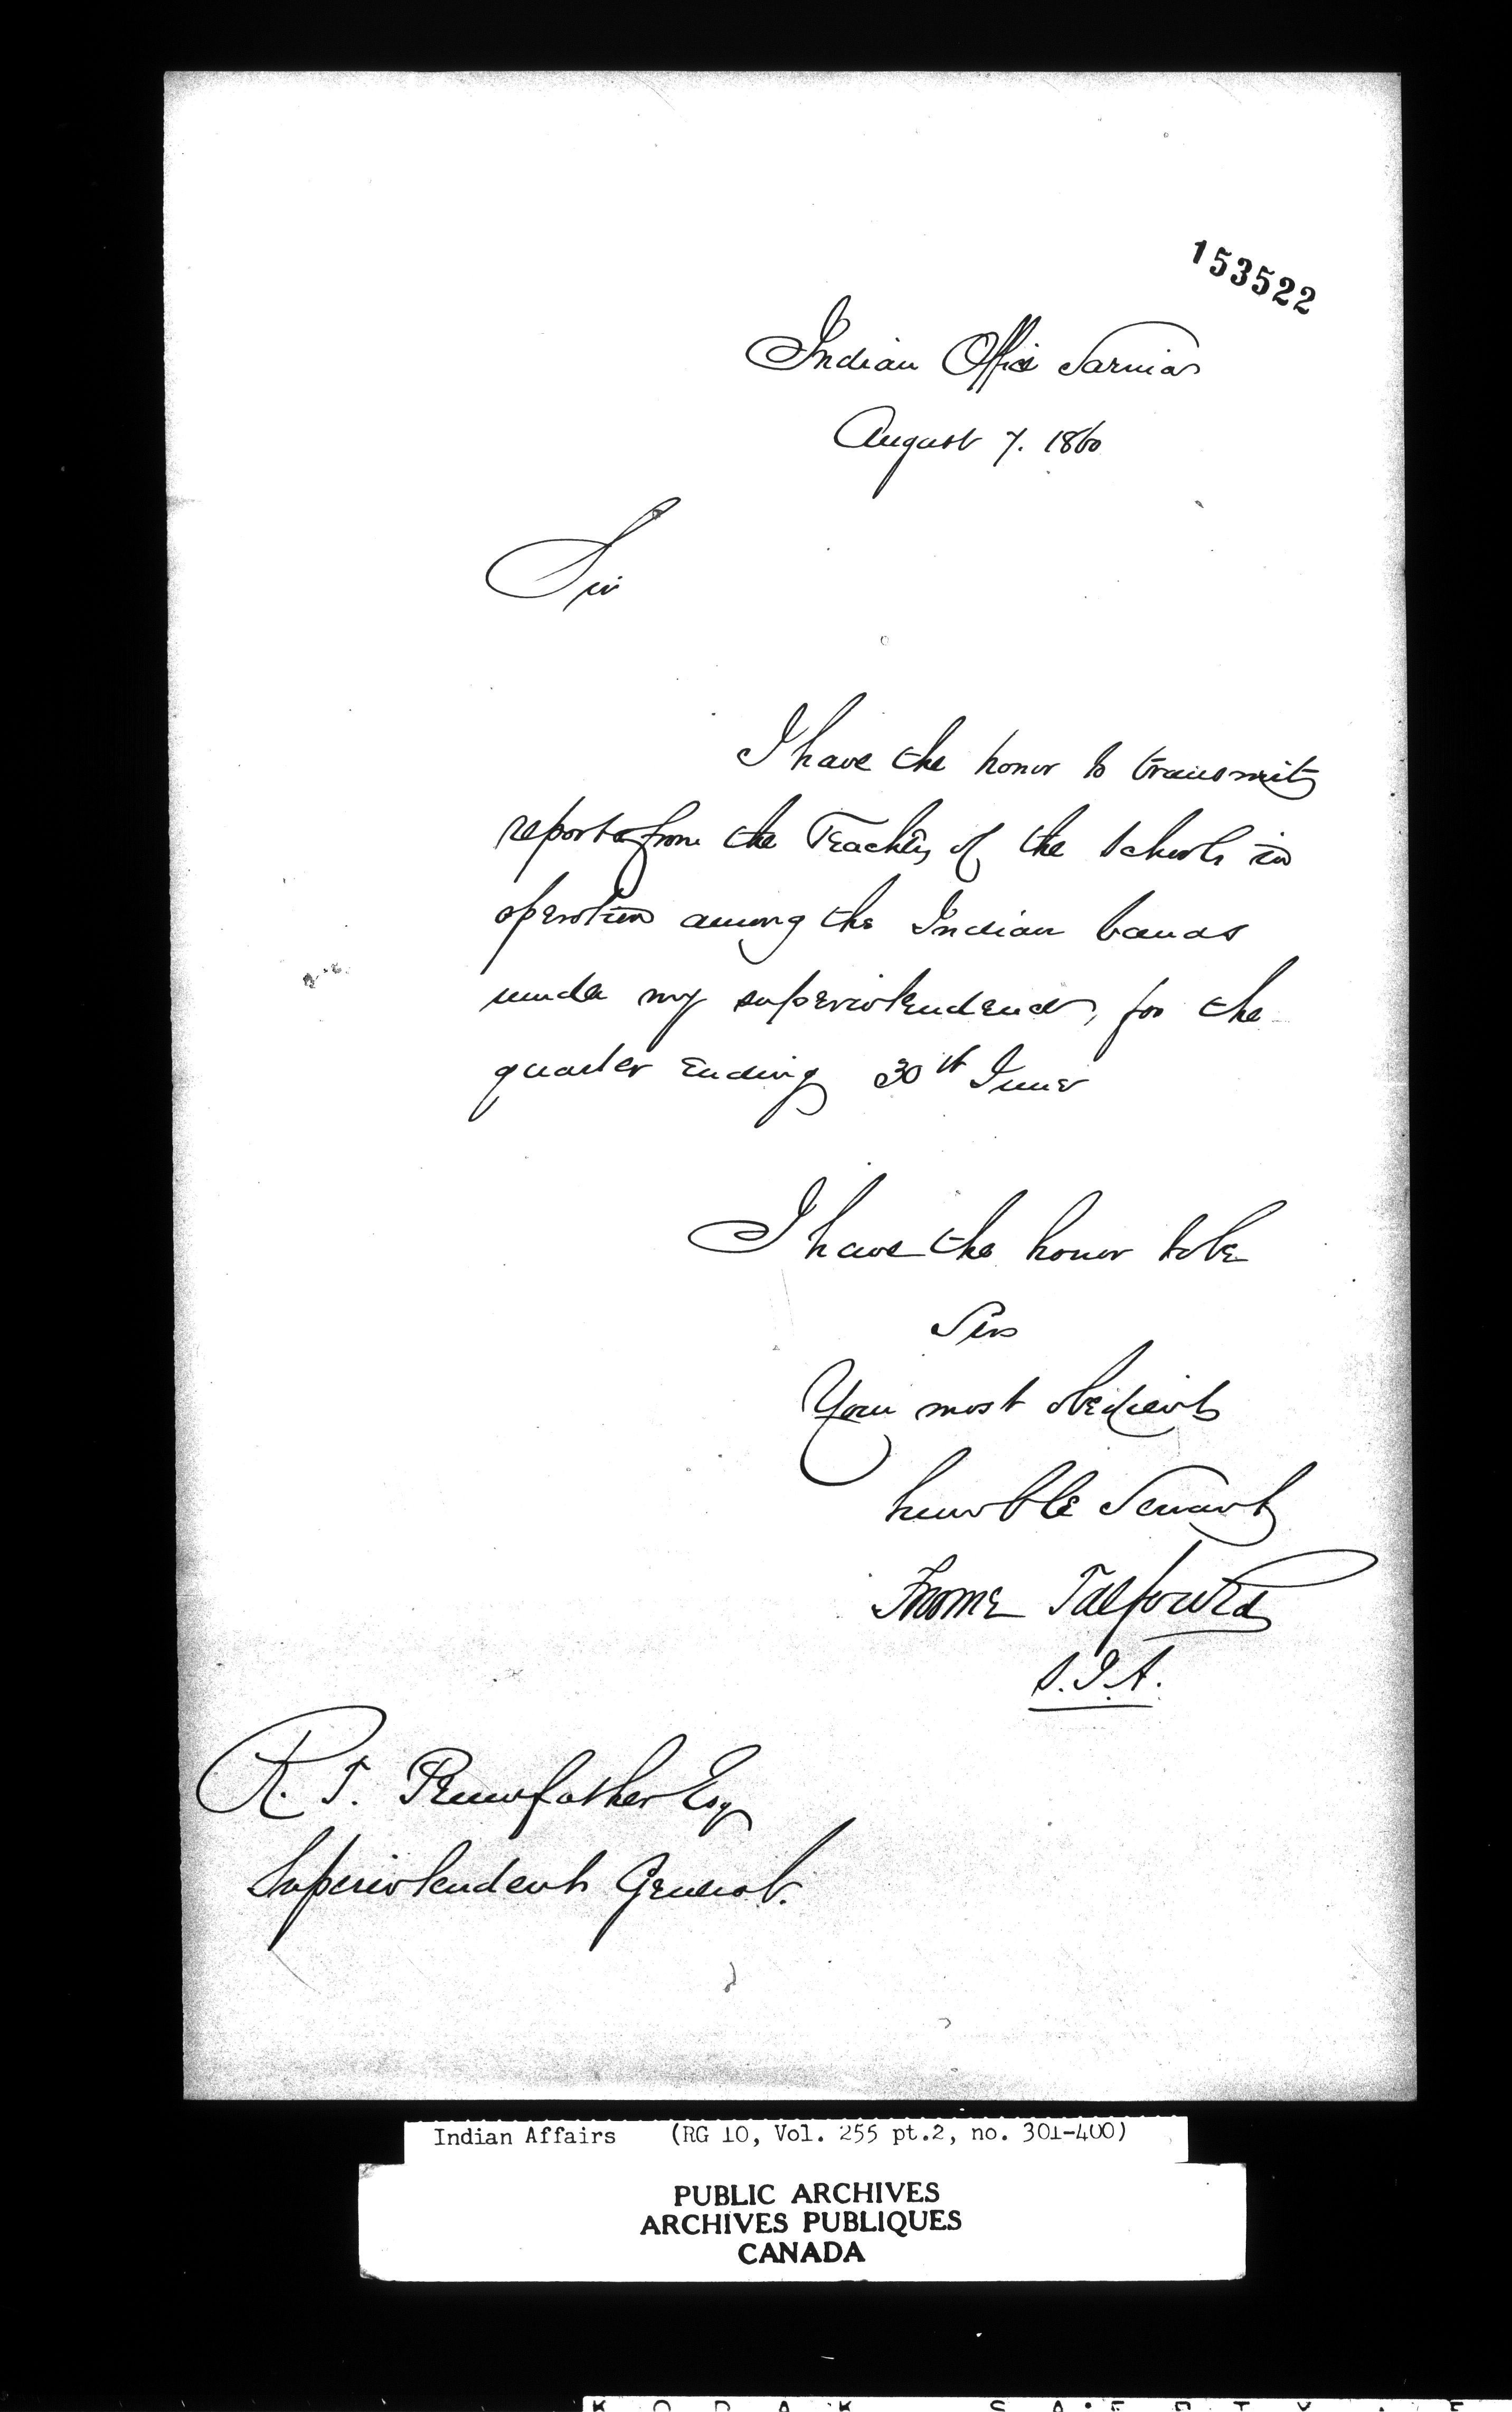 153522
Indian Office Sarnia
August 7. 1860
Sir
I have the honor to transmit
reports from the Teachers of the Schools in
operation among the Indian bands
under my superintendence, for the
quarter ending 30th June
I have the honor to be
Sir
Your most obedient
humble Servant
Froome Talfourd
S.I.A.
R. T. Pennefather Esq
Superintendent General.
Indian Affairs (RG 10, Vol. 255 pt.2, no. 301-400)
PUBLIC ARCHIVES
ARCHIVES PUBLIQUES
CANADA
KODAK SAFETY